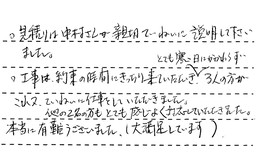 ○見積りは中村さんが親切でていねいに説明して下さい
ました。
とても寒い日にかかわらず
○工事は、約束の時間にきっちり来ていただき、3人の方が
ていねいに仕事をしていただきました。
他の2名の方もとても感じよく
本当に有難うございました。(大満足しています)